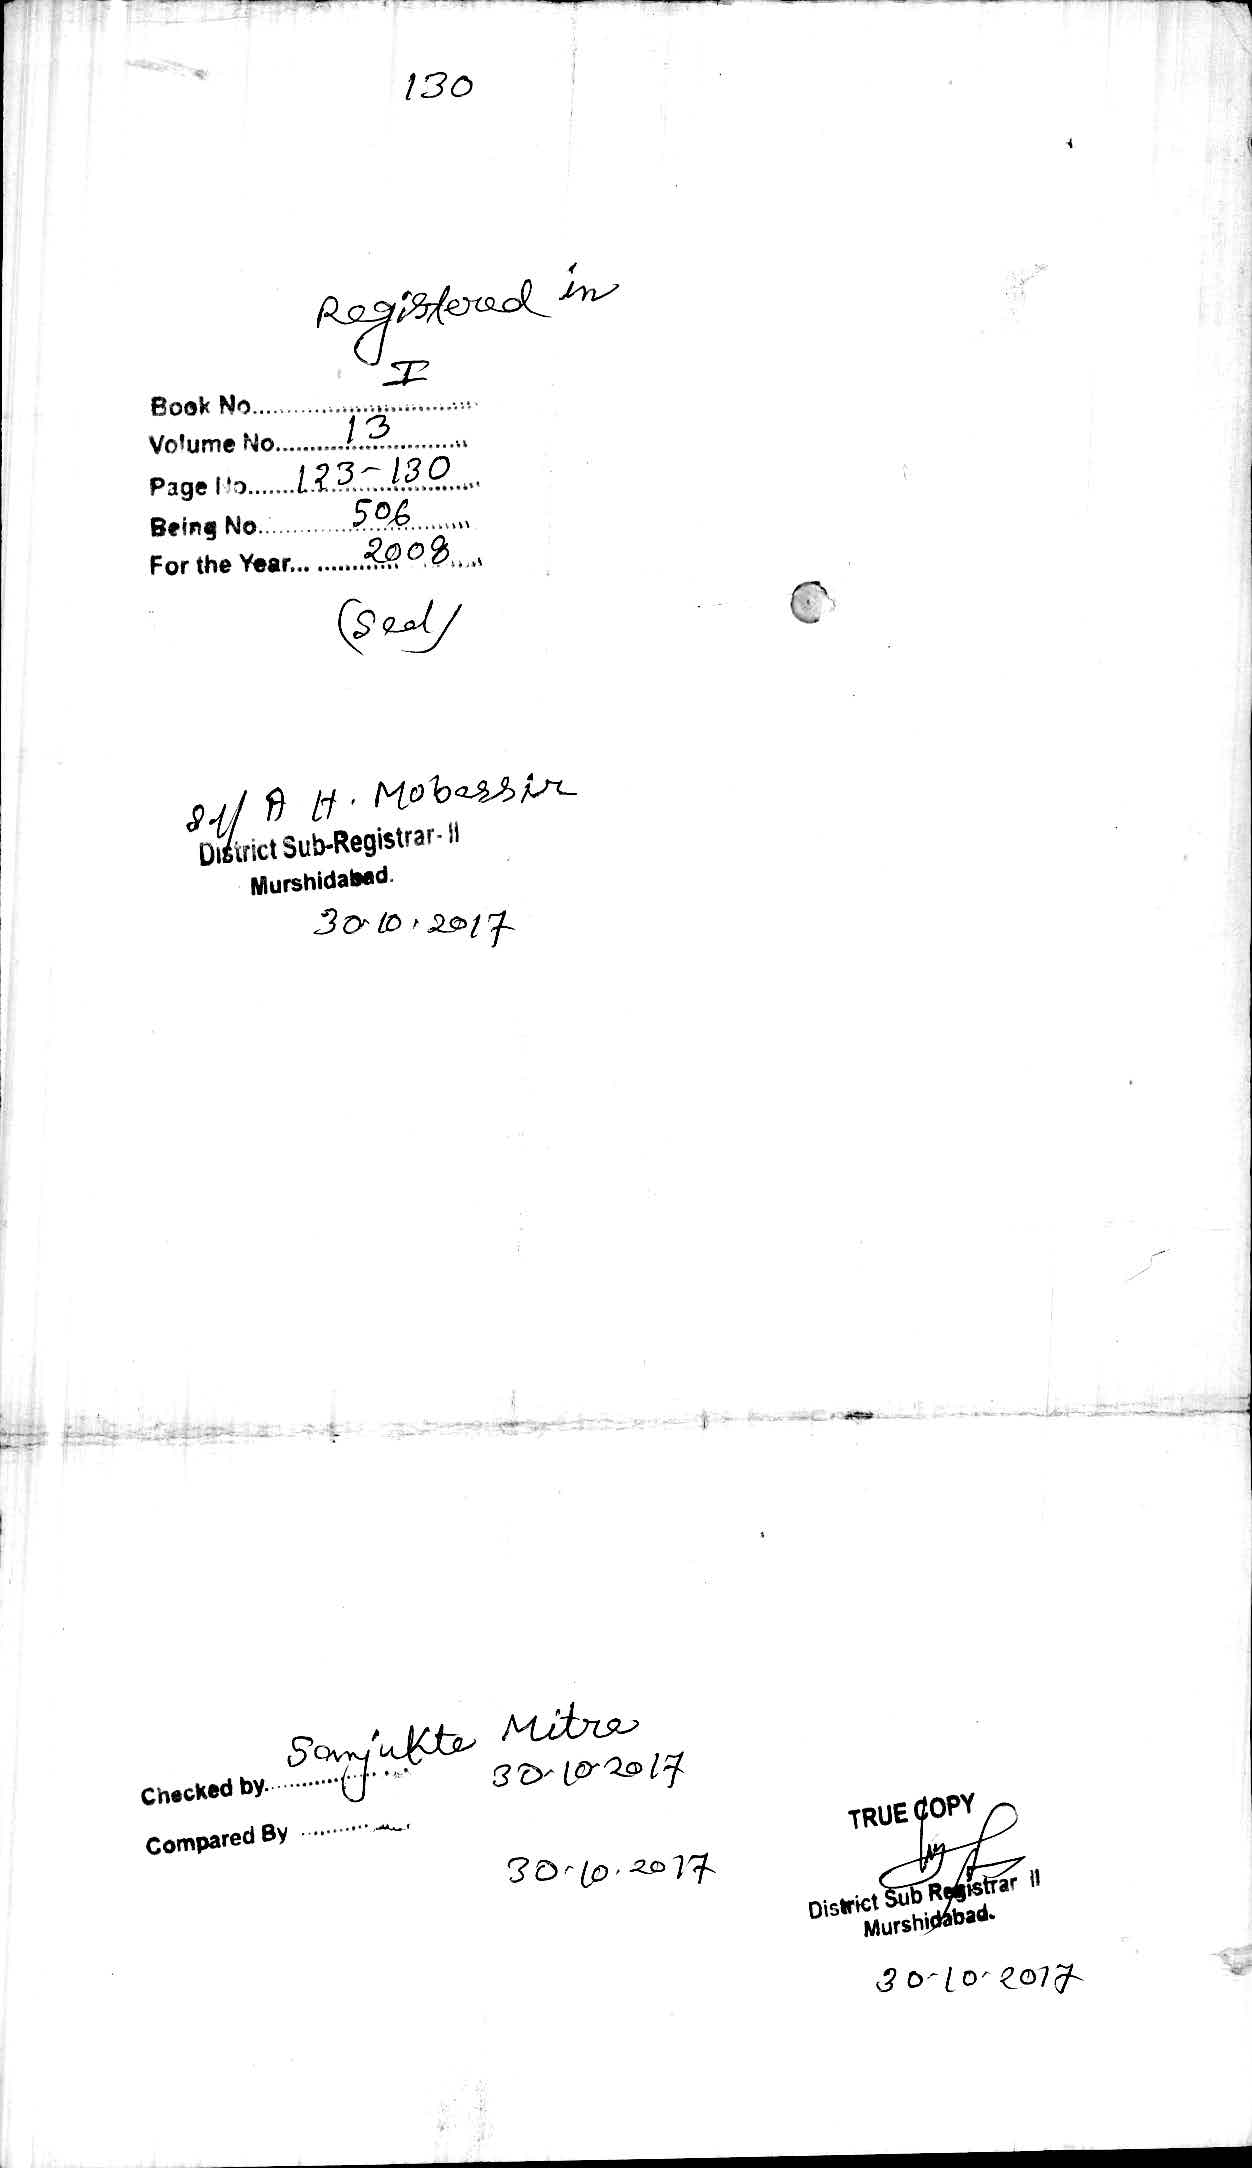 130
Registered in
Book No............I
Volume No............13
Page No.......123-130
Being No............506
For the Year... ............2008
(Seal)
Sd/ A H. Mobassir
District Sub-Registrar- II
Murshidabad.
30.10.2017
Sanjukta Mitra
Checked by............ 30.10.2017
Compared By ............
30.10.2017
TRUE COPY
District Sub Registrar II
Murshidabad.
30-10-2017